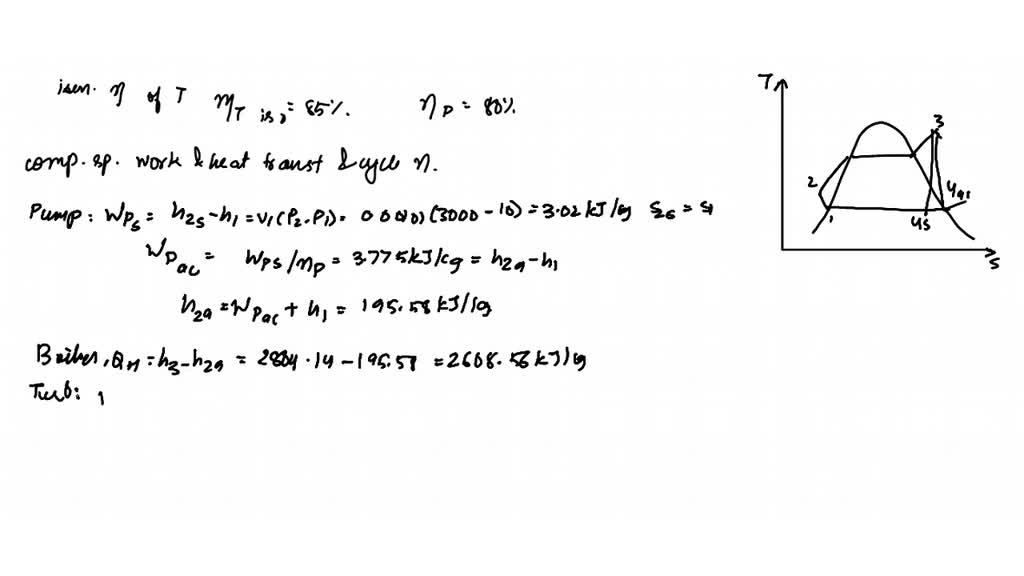 isen. η of T η_T is, = 85%. η_P = 80%
comp. sp. work & heat transf & cycle η.
Pump: W_Ps = h_2s - h_1 = v_1(P_2 - P_1) = 0.00101(3000 - 10) = 3.02 kJ/kg S_2s = S_1
W_Pac = W_Ps/η_P = 3.775 kJ/kg = h_2a - h_1
h_2a = W_Pac + h_1 = 195.58 kJ/kg
Boiler, Q_H = h_3 - h_2a = 2804.14 - 195.58 = 2608.56 kJ/kg
Turb:
T
3
2
4ac
1
4s
s